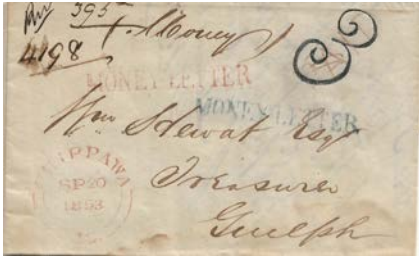 395
(Money)
4198
MONEY LETTER
MONEY LETTER
Wm Stewat Esqr
Treasurer
Guelph
CHIPPAWA
SP 20
1853